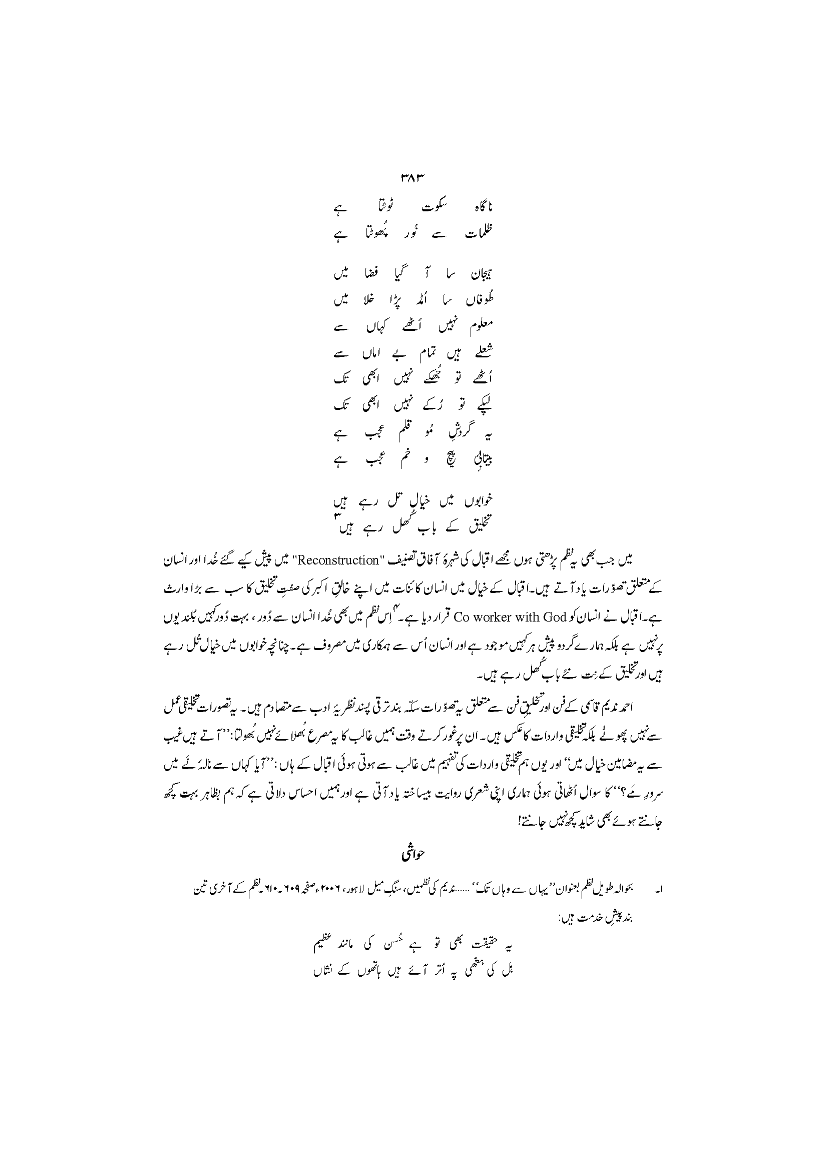 ۳۸۳
ناگاہ سکوت ٹوٹتا ہے
ظلمات سے نُور پھُوٹتا ہے
ہیجان سا آ گیا فضا میں
طُوفاں سا اُمڈ پڑا خلا میں
معلوم نہیں اُٹھے کہاں سے
شعلے ہیں تمام بے اماں سے
اُٹھے تو جُھکے نہیں ابھی تک
لپکے تو رُکے نہیں ابھی تک
یہ گردشِ مُو قلم عجب ہے
بیتابیِ پیچ و خم عجب ہے
خوابوں میں خیال تل رہے ہیں
تخلیق کے باب کُھل رہے ہیں۳
میں جب بھی یہ نظم پڑھتی ہوں مجھے اقبال کی شہرۂ آفاق تصنیف "Reconstruction" میں پیش کیے گئے خُدا اور انسان
کے متعلق تصوّرات یاد آتے ہیں۔ اقبال کے خیال میں انسان کائنات میں اپنے خالقِ اکبر کی صفتِ تخلیق کا سب سے بڑا وارث
ہے۔ اقبال نے انسان کو Co worker with God قرار دیا ہے۔۴ اِس نظم میں بھی خُدا انسان سے دُور، بہت دُور کہیں بلندیوں
پر نہیں ہے بلکہ ہمارے گردو پیش ہر کہیں موجود ہے اور انسان اُس سے ہمکاری میں مصروف ہے۔ چنانچہ خوابوں میں خیال تُل رہے
ہیں اور تخلیق کے نِت نئے باب کُھل رہے ہیں۔
احمد ندیم قاسمی کے فن اور تخلیقِ فن سے متعلق یہ تصوّرات سکّہ بند ترقی پسند نظریۂ ادب سے متصادم ہیں۔ یہ تصورات تخلیقی عمل
سے نہیں پھوٹے بلکہ تخلیقی واردات کا عکس ہیں۔ ان پر غور کرتے وقت ہمیں غالب کا یہ مصرع بُھلائے نہیں بُھولتا: ’’آتے ہیں غیب
سے یہ مضامین خیال میں‘‘ اور یوں ہم تخلیقی واردات کی تفہیم میں غالب سے ہوتی ہوئی اقبال کے ہاں: ’’آیا کہاں سے نالۂ نَے میں
سرورِ مَے؟‘‘ کا سوال اُٹھاتی ہوئی ہماری اپنی شعری روایت بیساختہ یاد آتی ہے اور ہمیں احساس دلاتی ہے کہ ہم بظاہر بہت کچھ
جانتے ہوئے بھی شاید کچھ نہیں جانتے!
حواشی
۱۔ بحوالہ طویل نظم بعنوان ’’یہاں سے وہاں تک‘‘ ......ندیم کی نظمیں، سنگِ میل لاہور، ۲۰۰۶ء صفحہ ۶۰۹۔۶۱۰۔ نظم کے آخری تین
بند پیشِ خدمت ہیں:
یہ حقیقت بھی تو ہے حُسن کی مانند عظیم
ہل کی ہتھی پہ اُتر آئے ہیں ہاتھوں کے نشاں